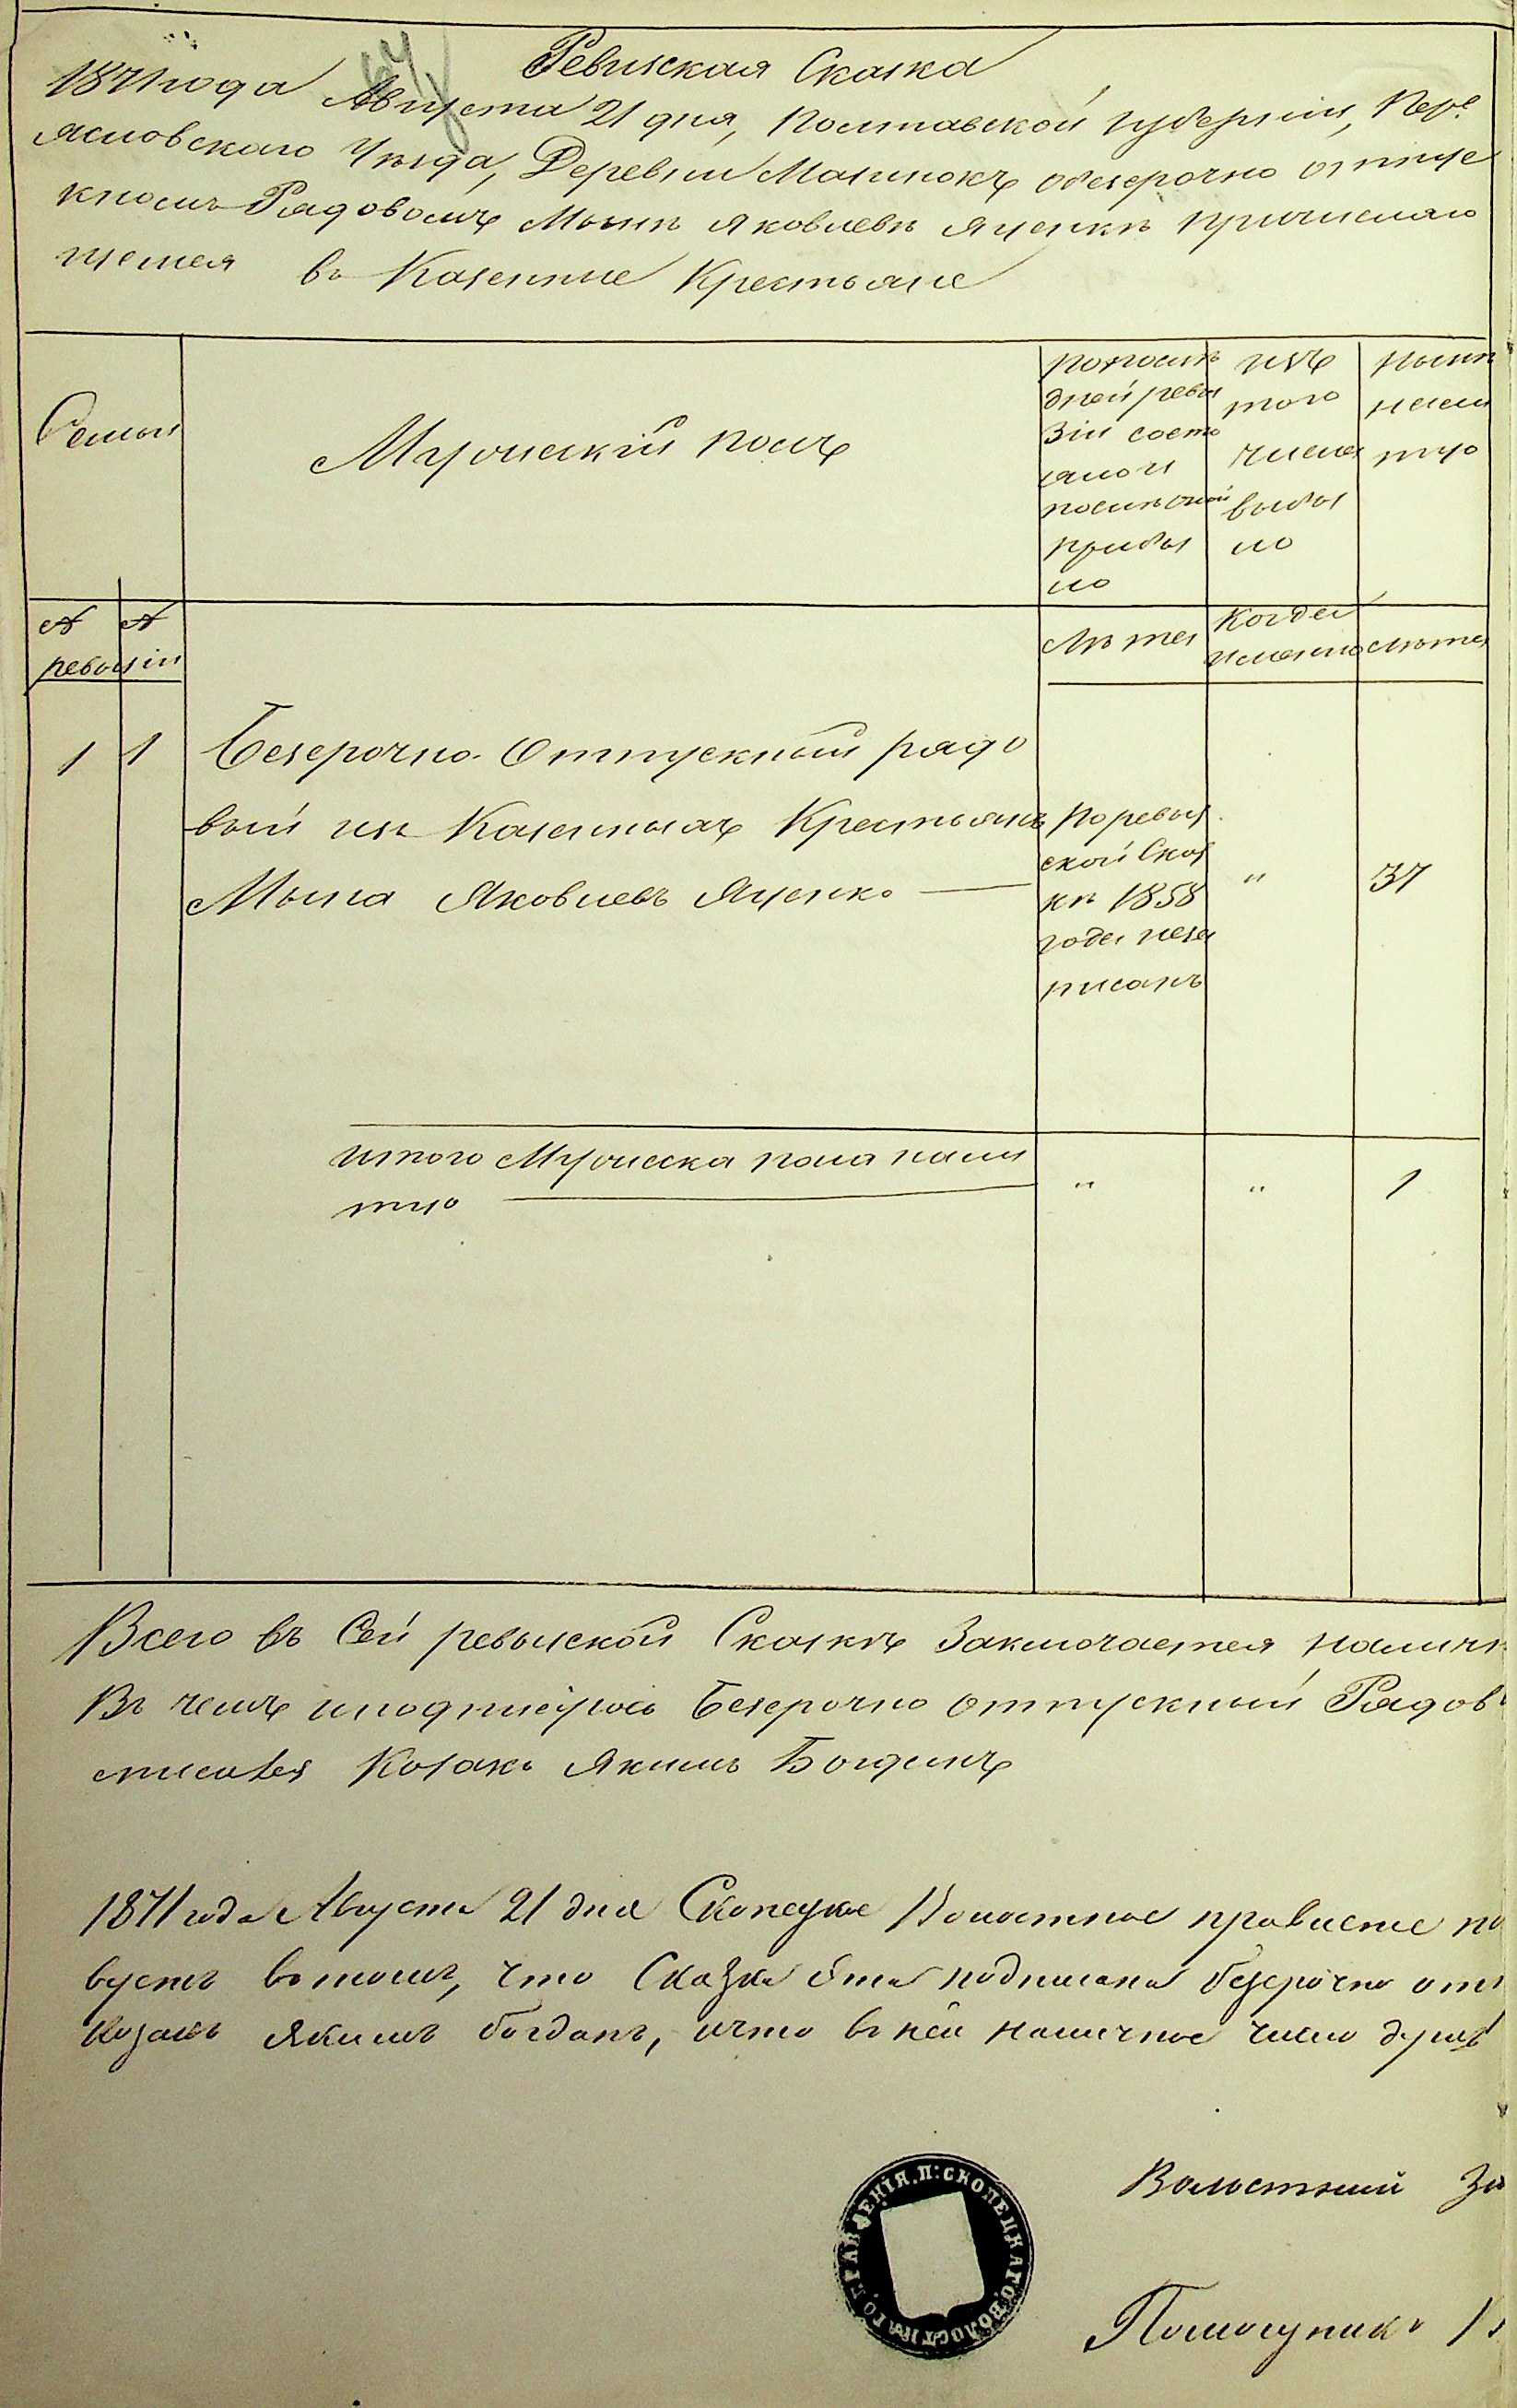 Ревизская Сказка
1871 года Августа 21 дня, Полтавской губернии, Пере
яславского Уезда, Деревни Малинокъ обезсрочно отпус
кномъ Рядовомъ Мыне Яковлеве Яценке причисляю
щемся въ Казенные Крестьяне
Семьи
Мужескій полъ
По после
дней реви
зіи состо
яло и
после оной
прибы
ло
изъ
того
числа
выбы
ло
ныне
нали
тцо
№ №
ревизіи
Лета
Когда
именно
лета
1 1 Безсрочно-Отпускный рядо
вый из Казенныхъ Крестьянъ
Мына Яковлевъ Яценко
По ревиз
ской Сказ
ке 1858
года неза
писанъ
"
37
итого Мужеска пола нали
тцо
" " 1
Всего въ Сей ревизской Сказкъ Заключается налич
Въ чемъ и подпісуюсь Безсрочно отпускный Рядов
списался Козакъ Якимъ Богданъ
1871 года Августа 21 дня Скопецкое Волостное правление
вуетъ въ томъ, что Сказка эта подписана безсрочно отп
Козакъ Якимъ Богданъ, и что въ ней наличное число душъ
Волостный
Помощникъ
П: СКОПЕЦКАГО ВОЛОСТНАГО ПРАВЛЕНІЯ.